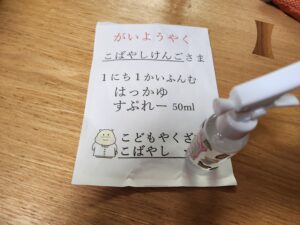 がいようやく
こばやしけんごさま
1にち1かいふんむ
はっかゆ
すぷれー 50ml
こどもやくざ
こばやし